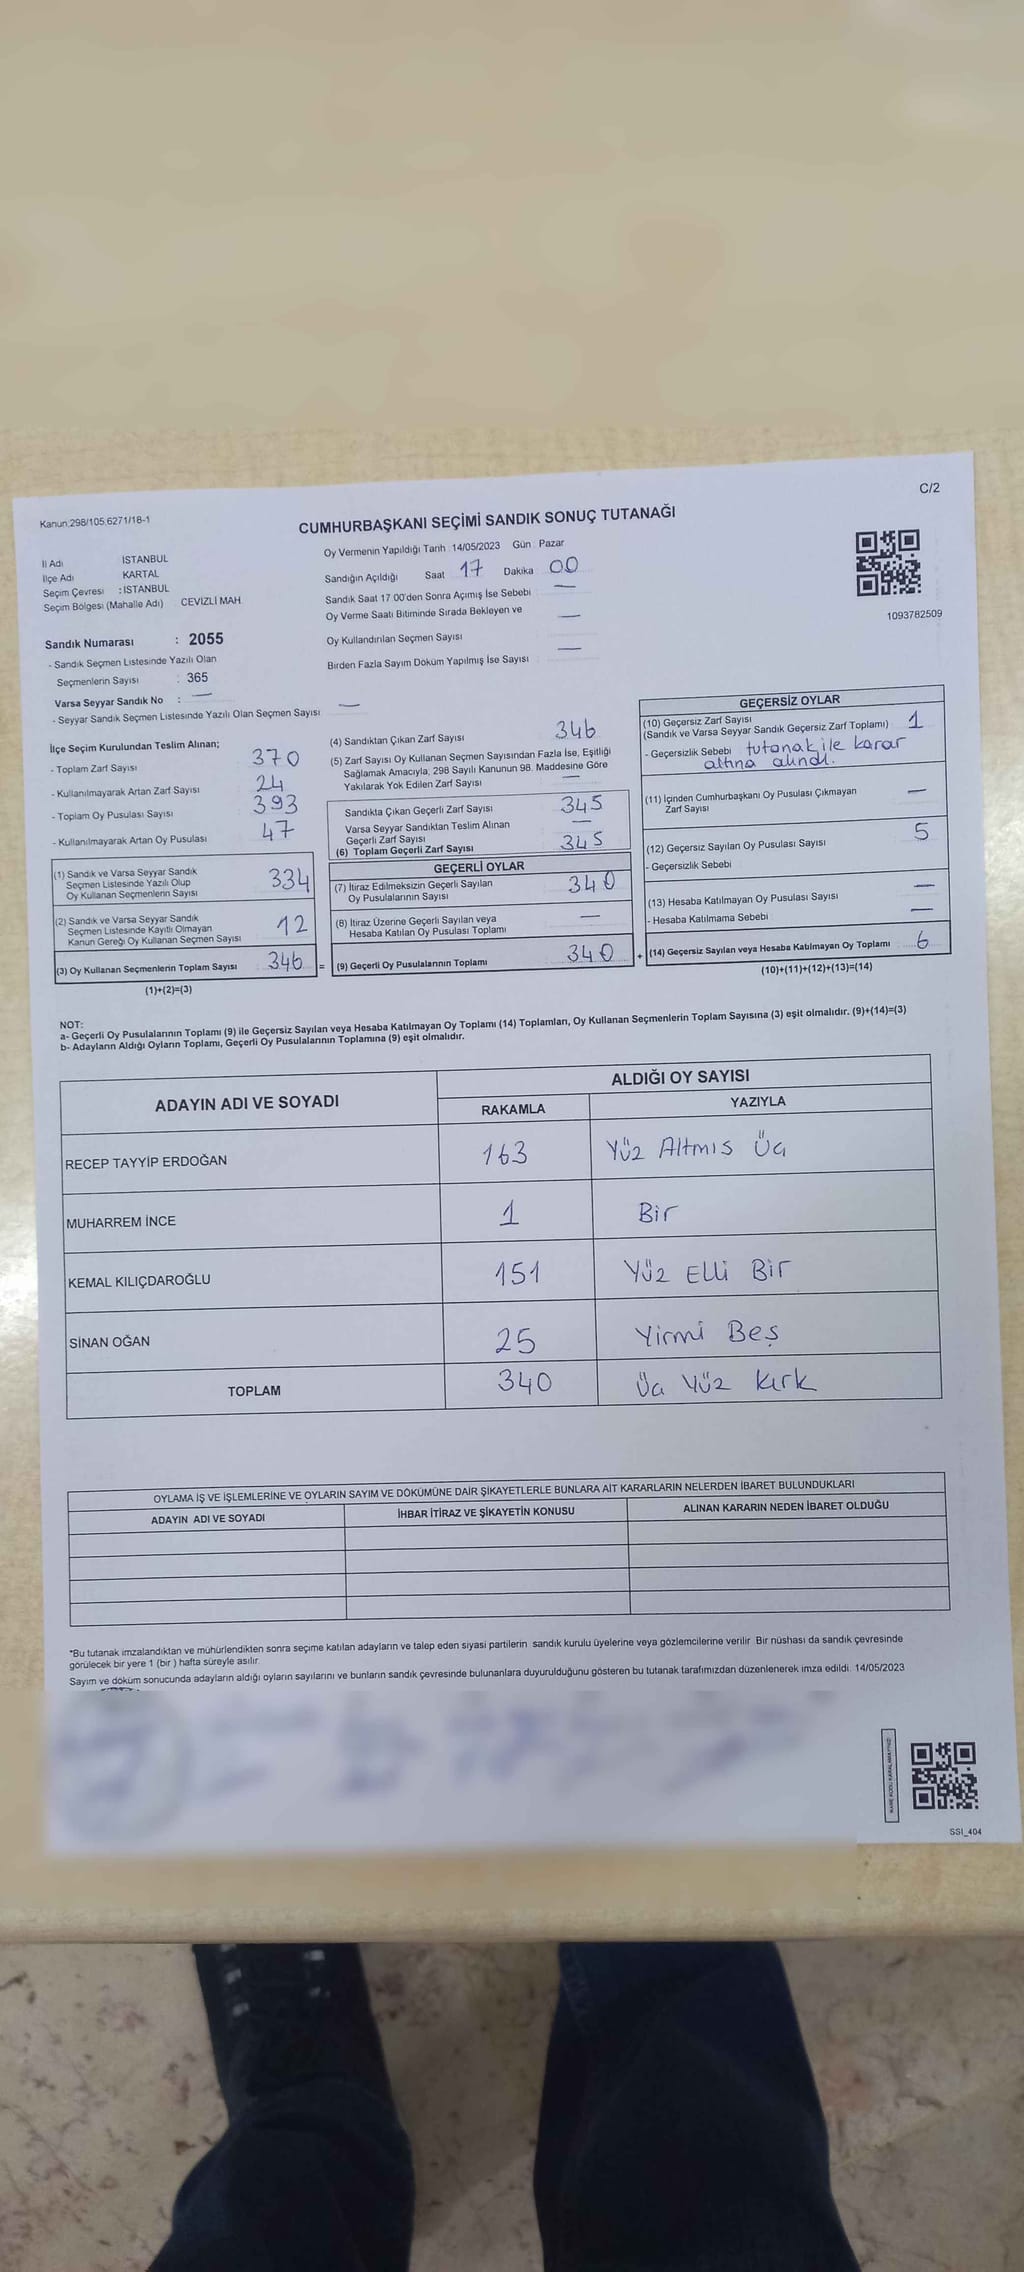 C/2
Kanun:298/105,6271/18-1
CUMHURBAŞKANI SEÇİMİ SANDIK SONUÇ TUTANAĞI
İl Adı İSTANBUL
İlçe Adı KARTAL
Seçim Çevresi : İSTANBUL
Seçim Bölgesi (Mahalle Adı) CEVİZLİ MAH.
Oy Vermenin Yapıldığı Tarih 14/05/2023 Gün : Pazar
Sandığın Açıldığı Saat 17 Dakika 00
Sandık Saat 17.00'den Sonra Açımış İse Sebebi —
Oy Verme Saati Bitiminde Sırada Bekleyen ve
Oy Kullandırılan Seçmen Sayısı —
Birden Fazla Sayım Döküm Yapılmış İse Sayısı —
1093782509
Sandık Numarası : 2055
- Sandık Seçmen Listesinde Yazılı Olan
Seçmenlerin Sayısı : 365
Varsa Seyyar Sandık No : —
- Seyyar Sandık Seçmen Listesinde Yazılı Olan Seçmen Sayısı —
İlçe Seçim Kurulundan Teslim Alınan;
- Toplam Zarf Sayısı 370
- Kullanılmayarak Artan Zarf Sayısı 24
- Toplam Oy Pusulası Sayısı 393
- Kullanılmayarak Artan Oy Pusulası 47
(1) Sandık ve Varsa Seyyar Sandık
Seçmen Listesinde Yazılı Olup
Oy Kullanan Seçmenlerin Sayısı 334
(2) Sandık ve Varsa Seyyar Sandık
Seçmen Listesinde Kayıtlı Olmayan
Kanun Gereği Oy Kullanan Seçmen Sayısı 12
(3) Oy Kullanan Seçmenlerin Toplam Sayısı 346 =
(1)+(2)=(3)
(4) Sandıktan Çıkan Zarf Sayısı 346
(5) Zarf Sayısı Oy Kullanan Seçmen Sayısından Fazla İse, Eşitliği
Sağlamak Amacıyla, 298 Sayılı Kanunun 98. Maddesine Göre
Yakılarak Yok Edilen Zarf Sayısı —
Sandıkta Çıkan Geçerli Zarf Sayısı 345
Varsa Seyyar Sandıktan Teslim Alınan
Geçerli Zarf Sayısı —
(6) Toplam Geçerli Zarf Sayısı 345
GEÇERLİ OYLAR
(7) İtiraz Edilmeksizin Geçerli Sayılan
Oy Pusulalarının Sayısı 340
(8) İtiraz Üzerine Geçerli Sayılan veya
Hesaba Katılan Oy Pusulası Toplamı —
(9) Geçerli Oy Pusulalarının Toplamı 340 +
GEÇERSİZ OYLAR
(10) Geçersiz Zarf Sayısı
(Sandık ve Varsa Seyyar Sandık Geçersiz Zarf Toplamı) 1
- Geçersizlik Sebebi tutanak ile karar
altına alındı.
(11) İçinden Cumhurbaşkanı Oy Pusulası Çıkmayan
Zarf Sayısı —
(12) Geçersiz Sayılan Oy Pusulası Sayısı 5
- Geçersizlik Sebebi
(13) Hesaba Katılmayan Oy Pusulası Sayısı —
- Hesaba Katılmama Sebebi —
(14) Geçersiz Sayılan veya Hesaba Katılmayan Oy Toplamı 6
(10)+(11)+(12)+(13)=(14)
NOT:
a- Geçerli Oy Pusulalarının Toplamı (9) ile Geçersiz Sayılan veya Hesaba Katılmayan Oy Toplamı (14) Toplamları, Oy Kullanan Seçmenlerin Toplam Sayısına (3) eşit olmalıdır. (9)+(14)=(3)
b- Adayların Aldığı Oyların Toplamı, Geçerli Oy Pusulalarının Toplamına (9) eşit olmalıdır.
ADAYIN ADI VE SOYADI ALDIĞI OY SAYISI
RAKAMLA YAZIYLA
RECEP TAYYİP ERDOĞAN 163 Yüz Altmıs Üç
MUHARREM İNCE 1 Bir
KEMAL KILIÇDAROĞLU 151 Yüz Elli Bir
SİNAN OĞAN 25 Yirmi Beş
TOPLAM 340 Üç Yüz Kırk
OYLAMA İŞ VE İŞLEMLERİNE VE OYLARIN SAYIM VE DÖKÜMÜNE DAİR ŞİKAYETLERLE BUNLARA AİT KARARLARIN NELERDEN İBARET BULUNDUKLARI
ADAYIN ADI VE SOYADI İHBAR İTİRAZ VE ŞİKAYETİN KONUSU ALINAN KARARIN NEDEN İBARET OLDUĞU
*Bu tutanak imzalandıktan ve mühürlendikten sonra seçime katılan adayların ve talep eden siyasi partilerin sandık kurulu üyelerine veya gözlemcilerine verilir. Bir nüshası da sandık çevresinde
görülecek bir yere 1 (bir) hafta süreyle asılır.
Sayım ve döküm sonucunda adayların aldığı oyların sayılarını ve bunların sandık çevresinde bulunanlara duyurulduğunu gösteren bu tutanak tarafımızdan düzenlenerek imza edildi. 14/05/2023
KARE KODU KARALAMAYINIZ!
SSİ_404